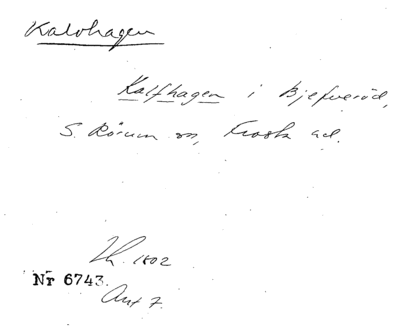 Kalvhagen
Kalfhagen i Bjefveröd,
S. Rörum sn, Frosta hd.
1802
Nr 6743.
Akt 7.